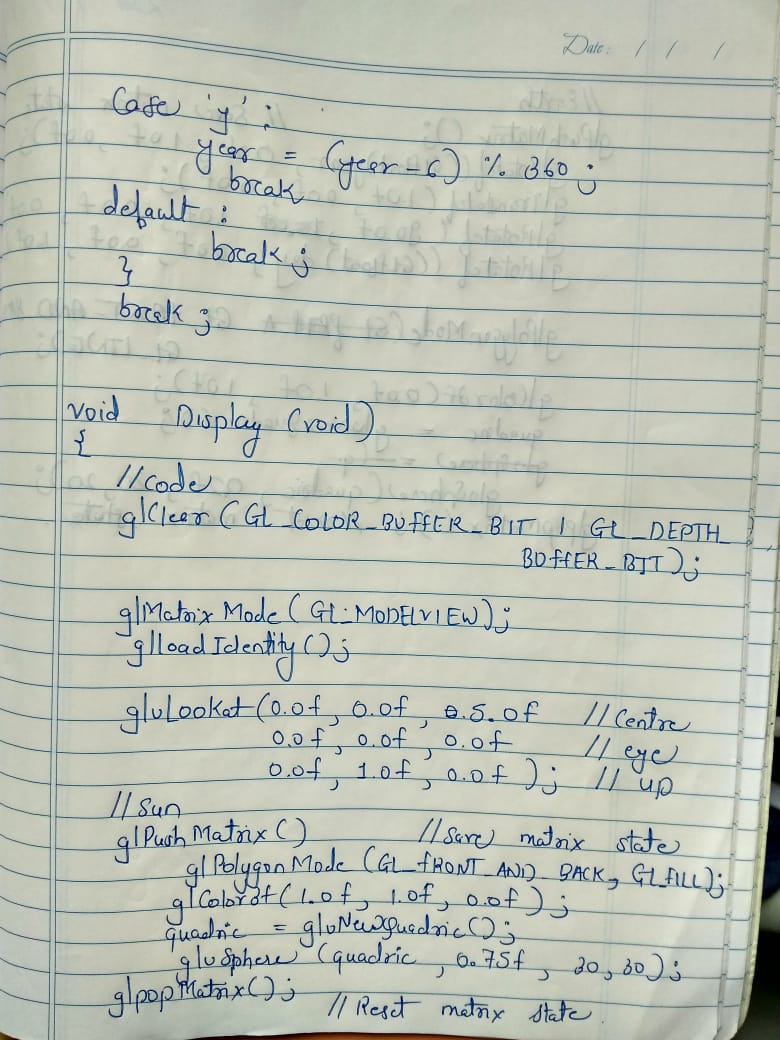 Date: / / /
Case 'y' :
year = (year - 6) % 360 ;
break
default :
break ;
}
break ;
void Display (void)
{
// code
glClear ( GL_COLOR_BUFFER_BIT | GL_DEPTH_
BUFFER_BIT ) ;
glMatrix Mode ( GL_MODELVIEW ) ;
glload Identity () ;
gluLookat (0.0f , 0.0f , 5.0f // Centre
0.0f , 0.0f , 0.0f // eye
0.0f , 1.0f , 0.0f ) ; // up
// Sun
glPush Matrix () // Save matrix state
gl Polygon Mode (GL_FRONT_AND_BACK, GL_FILL) ;
glColor3f ( 1.0f , 1.0f , 0.0f ) ;
quadric = gluNewQuadric () ;
glu Sphere (quadric , 0.75f , 30, 30) ;
glpop Matrix () ;
// Reset matrix state